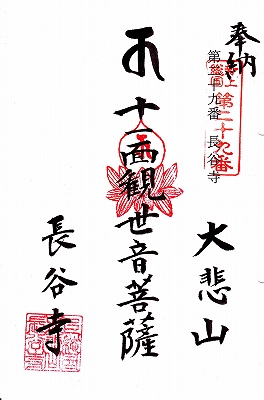 奉納
第二十九番 長谷寺
第二十九番
大悲山
十一面観世音菩薩
長谷寺